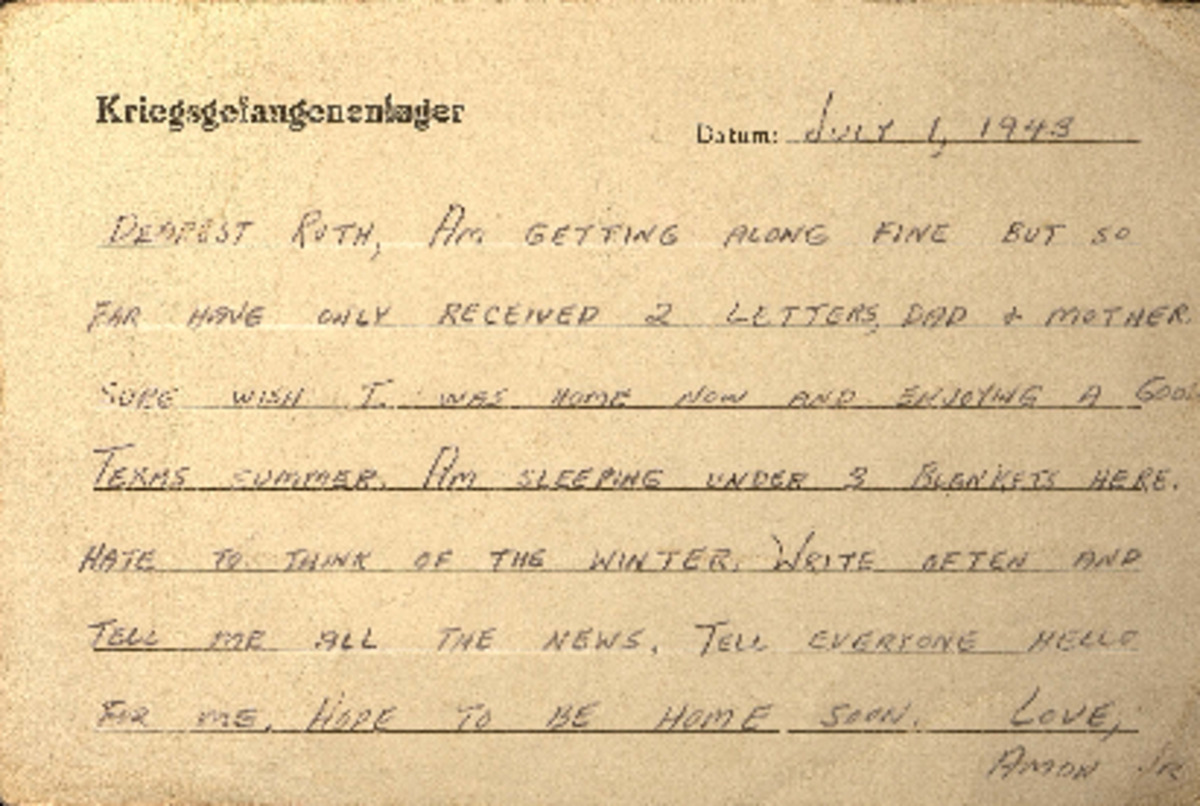 Kriegsgefangenenlager
Datum: JULY 1, 1943
DEAREST RUTH, AM GETTING ALONG FINE BUT SO
FAR HAVE ONLY RECEIVED 2 LETTERS, DAD & MOTHER.
SURE WISH I WAS HOME NOW AND ENJOYING A GOOD
TEXAS SUMMER. AM SLEEPING UNDER 3 BLANKETS HERE.
HATE TO THINK OF THE WINTER. WRITE OFTEN AND
TELL ME ALL THE NEWS. TELL EVERYONE HELLO
FOR ME. HOPE TO BE HOME SOON. LOVE,
AMON JR